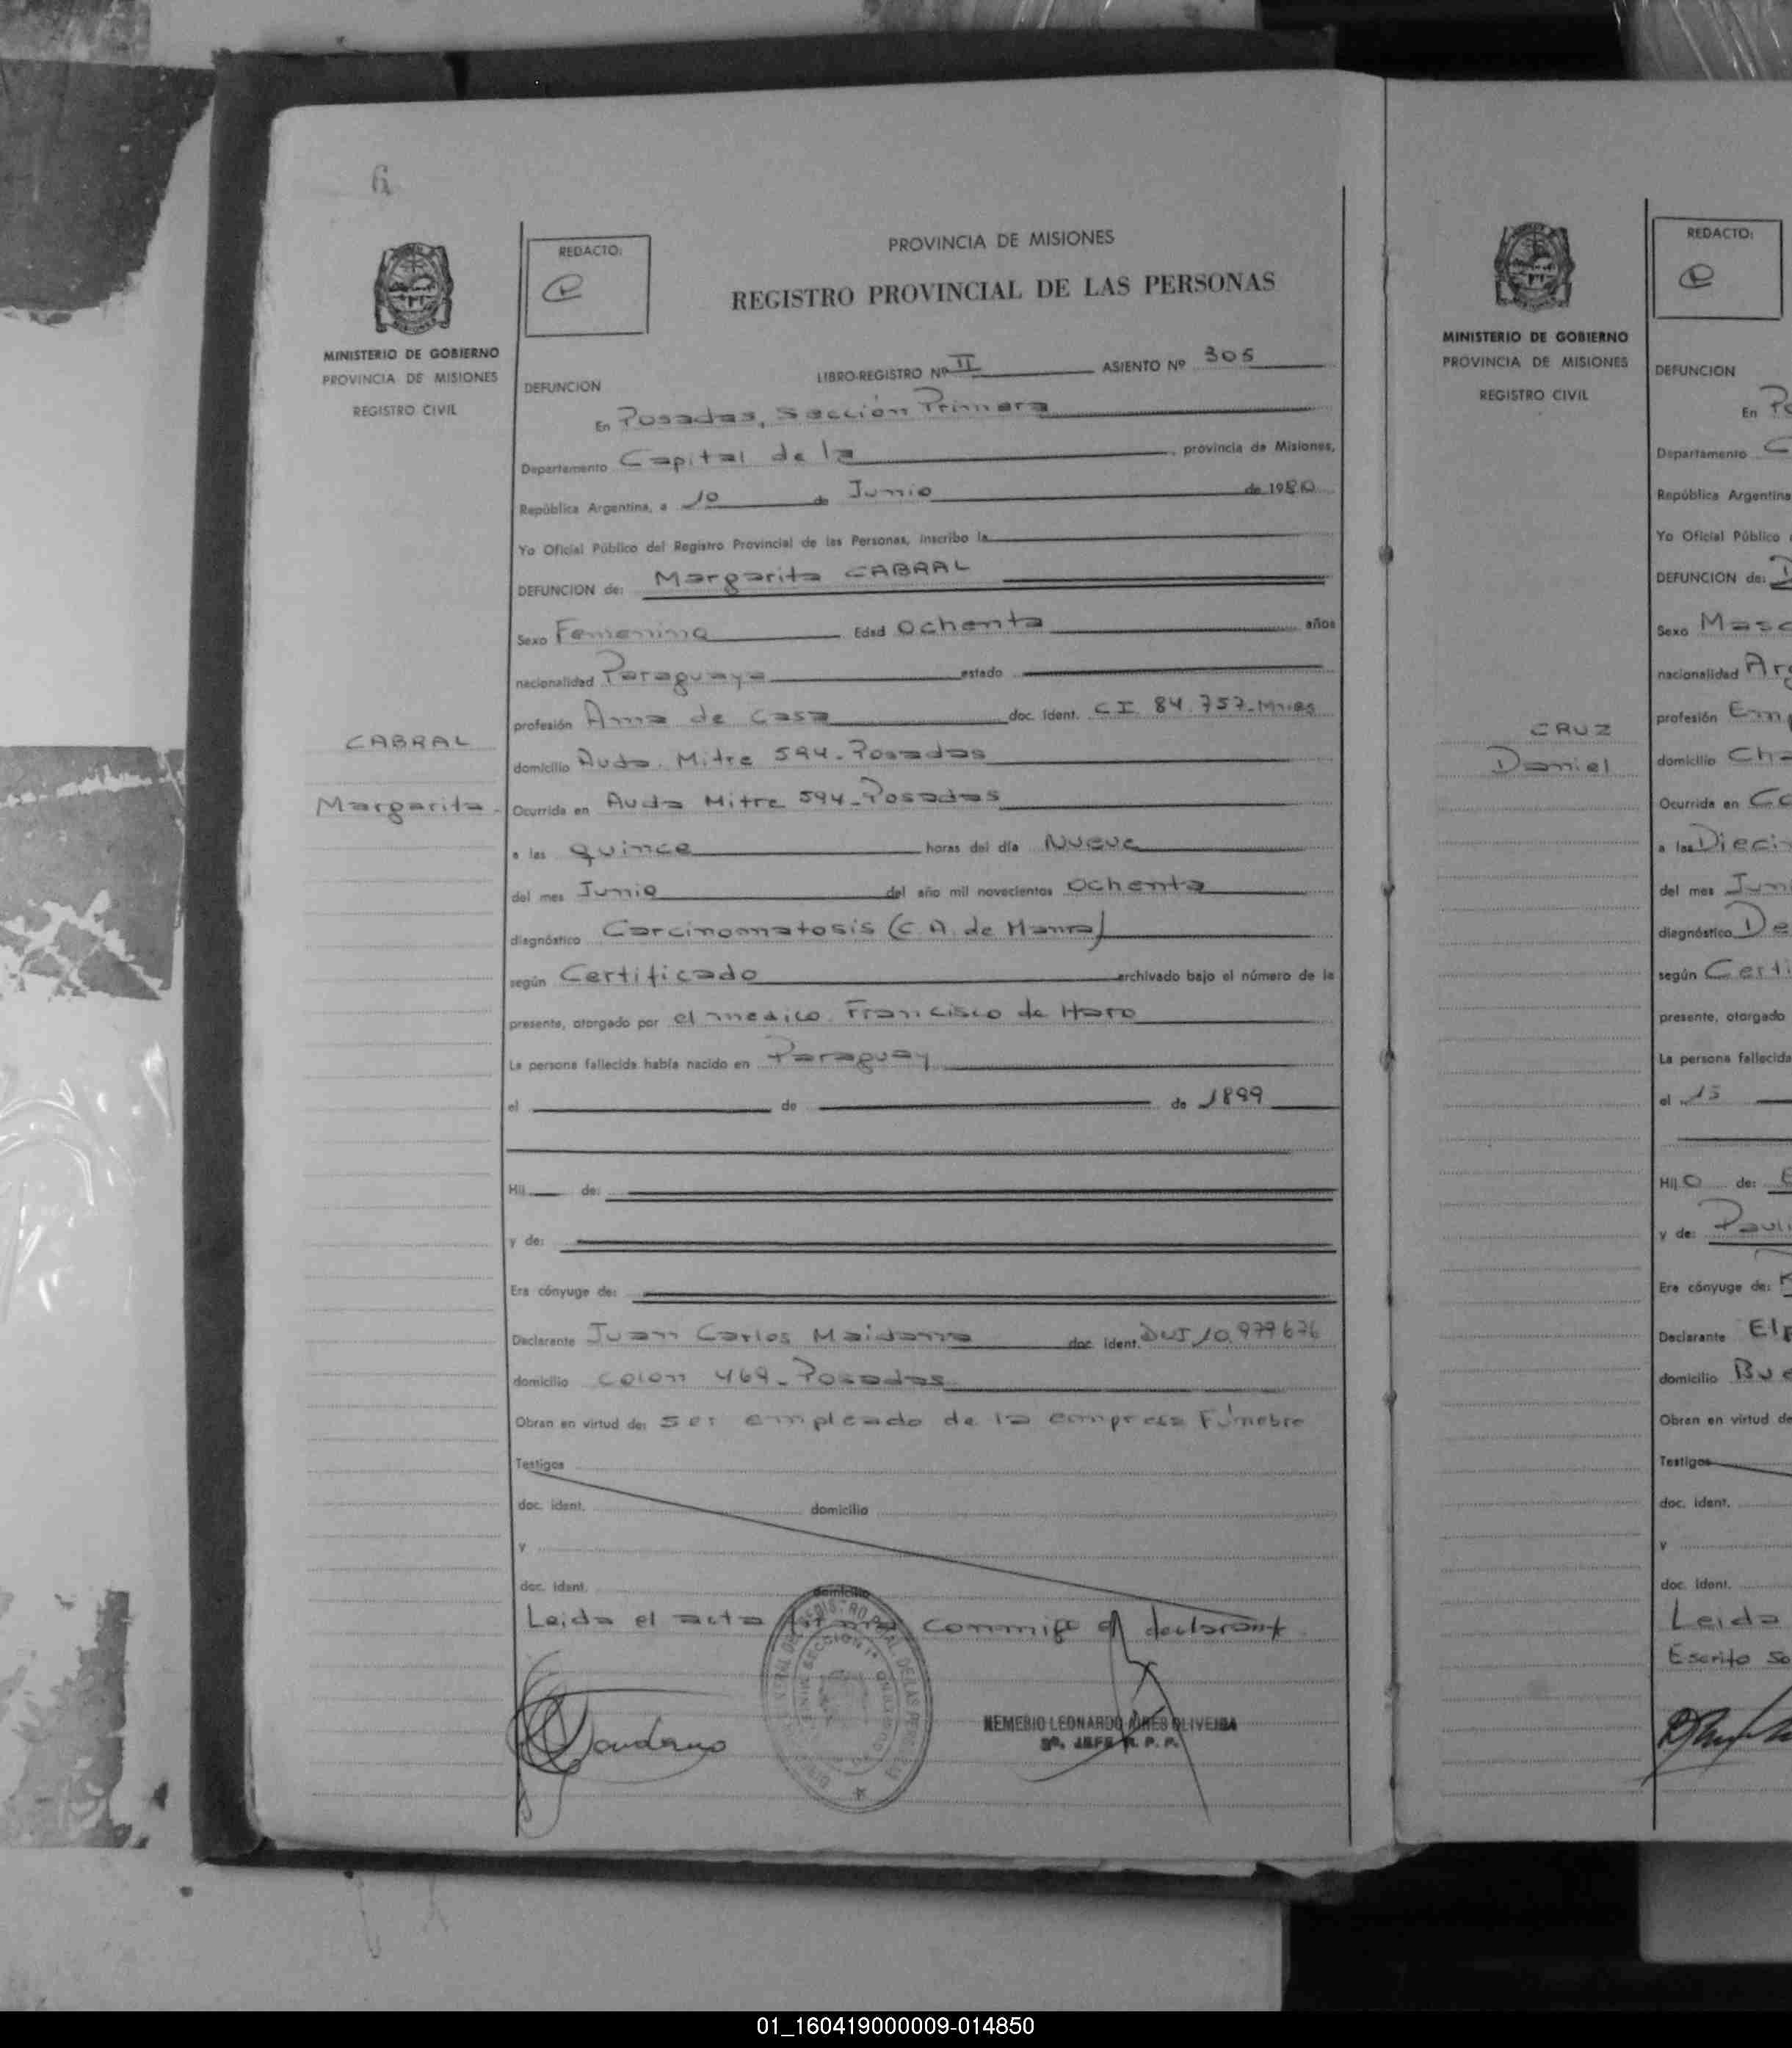 6
MINISTERIO DE GOBIERNO
PROVINCIA DE MISIONES
REGISTRO CIVIL
CABRAL
Margarita.
REDACTO:
PROVINCIA DE MISIONES
REGISTRO PROVINCIAL DE LAS PERSONAS
DEFUNCION LIBRO-REGISTRO Nº II ASIENTO Nº 305
En Posadas, Sección Primera
Departamento Capital de la provincia de Misiones,
República Argentina, a 10 de Junio de 1980
Yo Oficial Público del Registro Provincial de las Personas, inscribo la
DEFUNCION de: Margarita CABRAL
Sexo Femenino Edad Ochenta años
nacionalidad Paraguaya estado
profesión Ama de casa doc. ident. CI 84.757-Mnes
domicilio Avda. Mitre 594-Posadas
Ocurrida en Avda Mitre 594-Posadas
a las quince horas del día Nueve
del mes Junio del año mil novecientos Ochenta
diagnóstico Carcinomatosis (C.A. de Mama)
según Certificado archivado bajo el número de la
presente, otorgado por el medico Francisco de Haro
La persona fallecida había nacido en Paraguay
el de de 1899
Hij de:
y de:
Era cónyuge de:
Declarante Juan Carlos Maidana doc. ident. DNI 10.979676
domicilio Colon 469-Posadas
Obran en virtud de: ser empleado de la empresa Fúnebre
Testigos
doc. ident. domicilio
y
doc. ident. domicilio
Leida el acta firma conmigo el declarante.
NEMESIO LEONARDO AIRES OLIVEIRA
2º. JEFE R. P. P.
MINISTERIO DE GOBIERNO
PROVINCIA DE MISIONES
REGISTRO CIVIL
CRUZ
Daniel
REDACTO:
DEFUNCION
En Po
Departamento C
República Argentina
Yo Oficial Público
DEFUNCION de:
Sexo Masc
nacionalidad Arg
profesión Emp
domicilio Cha
Ocurrida en Ca
a las Dieci
del mes Jun
diagnóstico De
según Certi
presente, otorgado
La persona fallecida
el 15
Hijo de: E
y de: Pauli
Era cónyuge de:
Declarante Elp
domicilio Bue
Obran en virtud de
Testigos
doc. ident.
y
doc. ident.
Leida
Escrito so
01_160419000009-014850